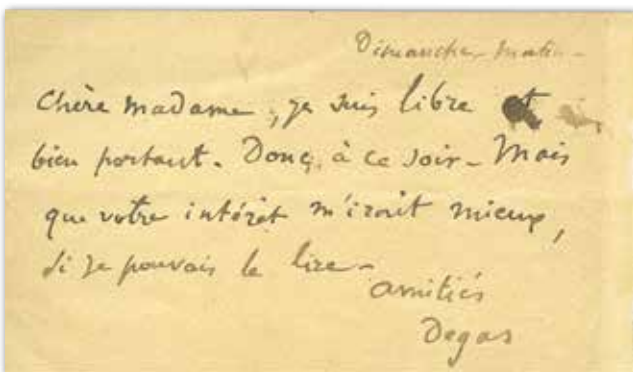 Dimanche matin
Chère Madame, je suis libre et
bien portant. Donc, à ce soir_ Mais
que votre intérêt m'irait mieux,
si je pouvais le lire_
amitiés
Degas